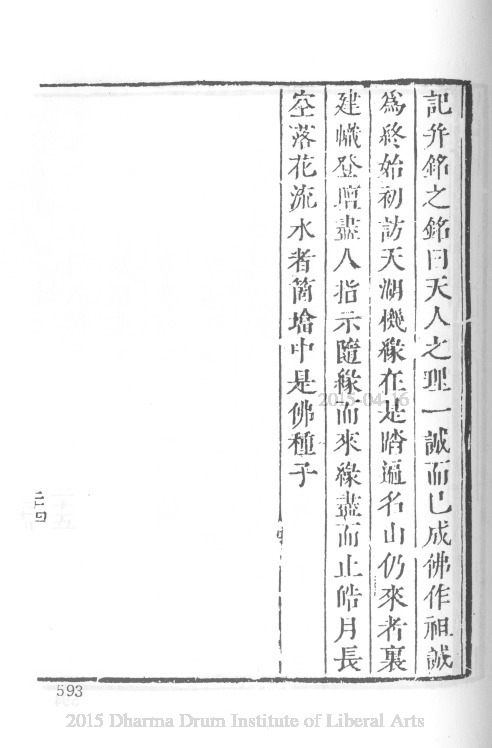 記幷銘之銘曰天人之理一誠而已成佛作祖誠
爲終始初訪天湖機緣在是踏遍名山仍來者裏
建幟登壇盡人指示隨緣而來緣盡而止皓月長
空落花流水者箇墖中是佛種子
二四
593
2015-04-16
2015 Dharma Drum Institute of Liberal Arts